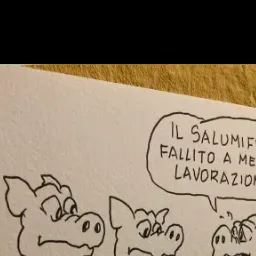 IL SALUMIF
FALLITO A ME
LAVORAZION